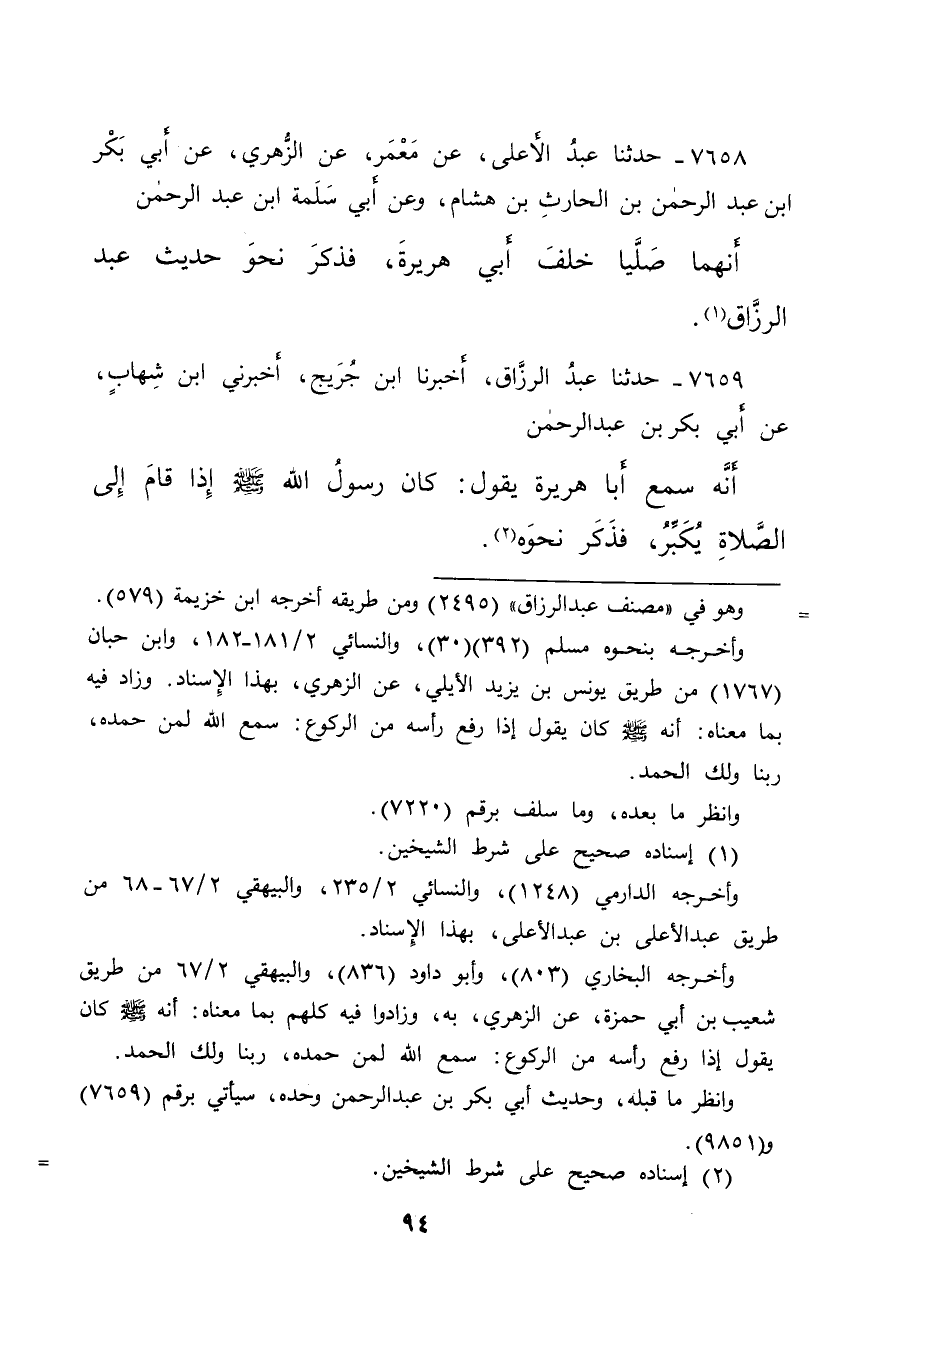 ٧٦٥٨ـ حدثنا عبدُ الأَعلى، عن مَعْمَر، عن الزُّهري، عن أَبي بَكْر
ابن عبد الرحمٰن بن الحارثِ بن هشام، وعن أَبي سَلَمة ابن عبد الرحمٰن
أَنهما صَلَّيا خلفَ أَبي هريرةَ، فذكرَ نحوَ حديث عبد
الرزَّاق(١).
٧٦٥٩ـ حدثنا عبدُ الرزَّاق، أَخبرنا ابن جُرَيج، أَخبرني ابن شِهابٍ،
عن أَبي بكر بن عبدالرحمٰن
أَنَّه سمع أَبا هريرة يقول: كان رسولُ الله ﷺ إِذا قامَ إِلى
الصَّلاةِ يُكَبِّرُ، فذَكَر نحوَه(٢).
= وهو في «مصنف عبدالرزاق» (٢٤٩٥) ومن طريقه أخرجه ابن خزيمة (٥٧٩).
وأخـرجـه بنحـوه مسلم (٣٩٢)(٣٠)، والنسائي ١٨١/٢ـ١٨٢، وابن حبان
(١٧٦٧) من طريق يونس بن يزيد الأيلي، عن الزهري، بهذا الإسناد. وزاد فيه
بما معناه: أنه ﷺ كان يقول إذا رفع رأسه من الركوع: سمع الله لمن حمده،
ربنا ولك الحمد.
وانظر ما بعده، وما سلف برقم (٧٢٢٠).
(١) إسناده صحيح على شرط الشيخين.
وأخـرجه الدارمي (١٢٤٨)، والنسائي ٢٣٥/٢، والبيهقي ٦٧/٢ـ٦٨ من
طريق عبدالأعلى بن عبدالأعلى، بهذا الإسناد.
وأخـرجه البخاري (٨٠٣)، وأبو داود (٨٣٦)، والبيهقي ٦٧/٢ من طريق
شعيب بن أبي حمزة، عن الزهري، به، وزادوا فيه كلهم بما معناه: أنه ﷺ كان
يقول إذا رفع رأسه من الركوع: سمع الله لمن حمده، ربنا ولك الحمد.
وانظر ما قبله، وحديث أبي بكر بن عبدالرحمن وحده، سيأتي برقم (٧٦٥٩)
و(٩٨٥١).
(٢) إسناده صحيح على شرط الشيخين. =
٩٤